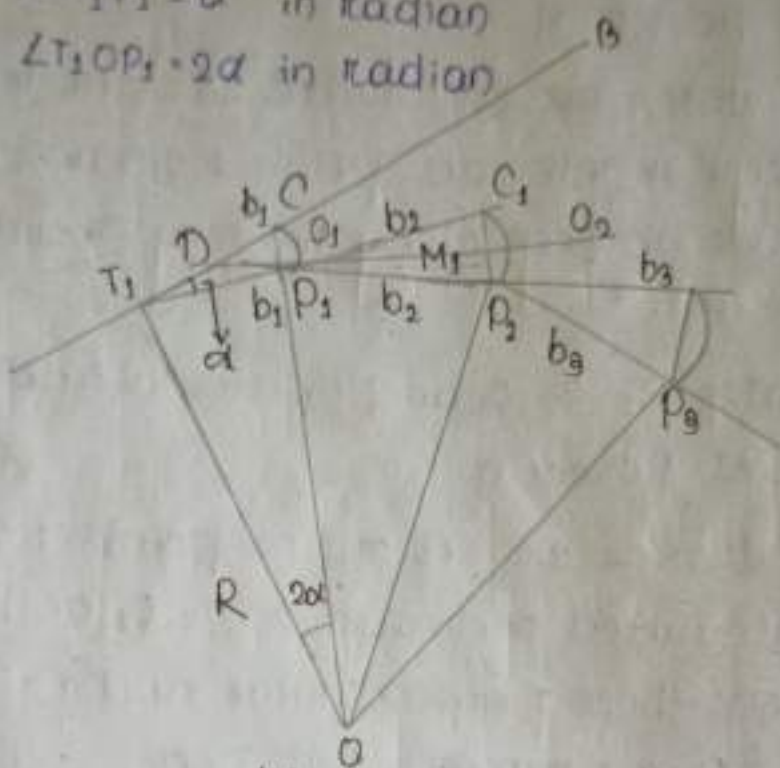 in radian
∠T₁OP₁ = 2α in radian
B
C
b₁
O₁
b₂
C₁
O₂
D
M₁
b₃
T₁
b₁
P₁
b₂
P₂
b₃
α
P₃
R
2α
O